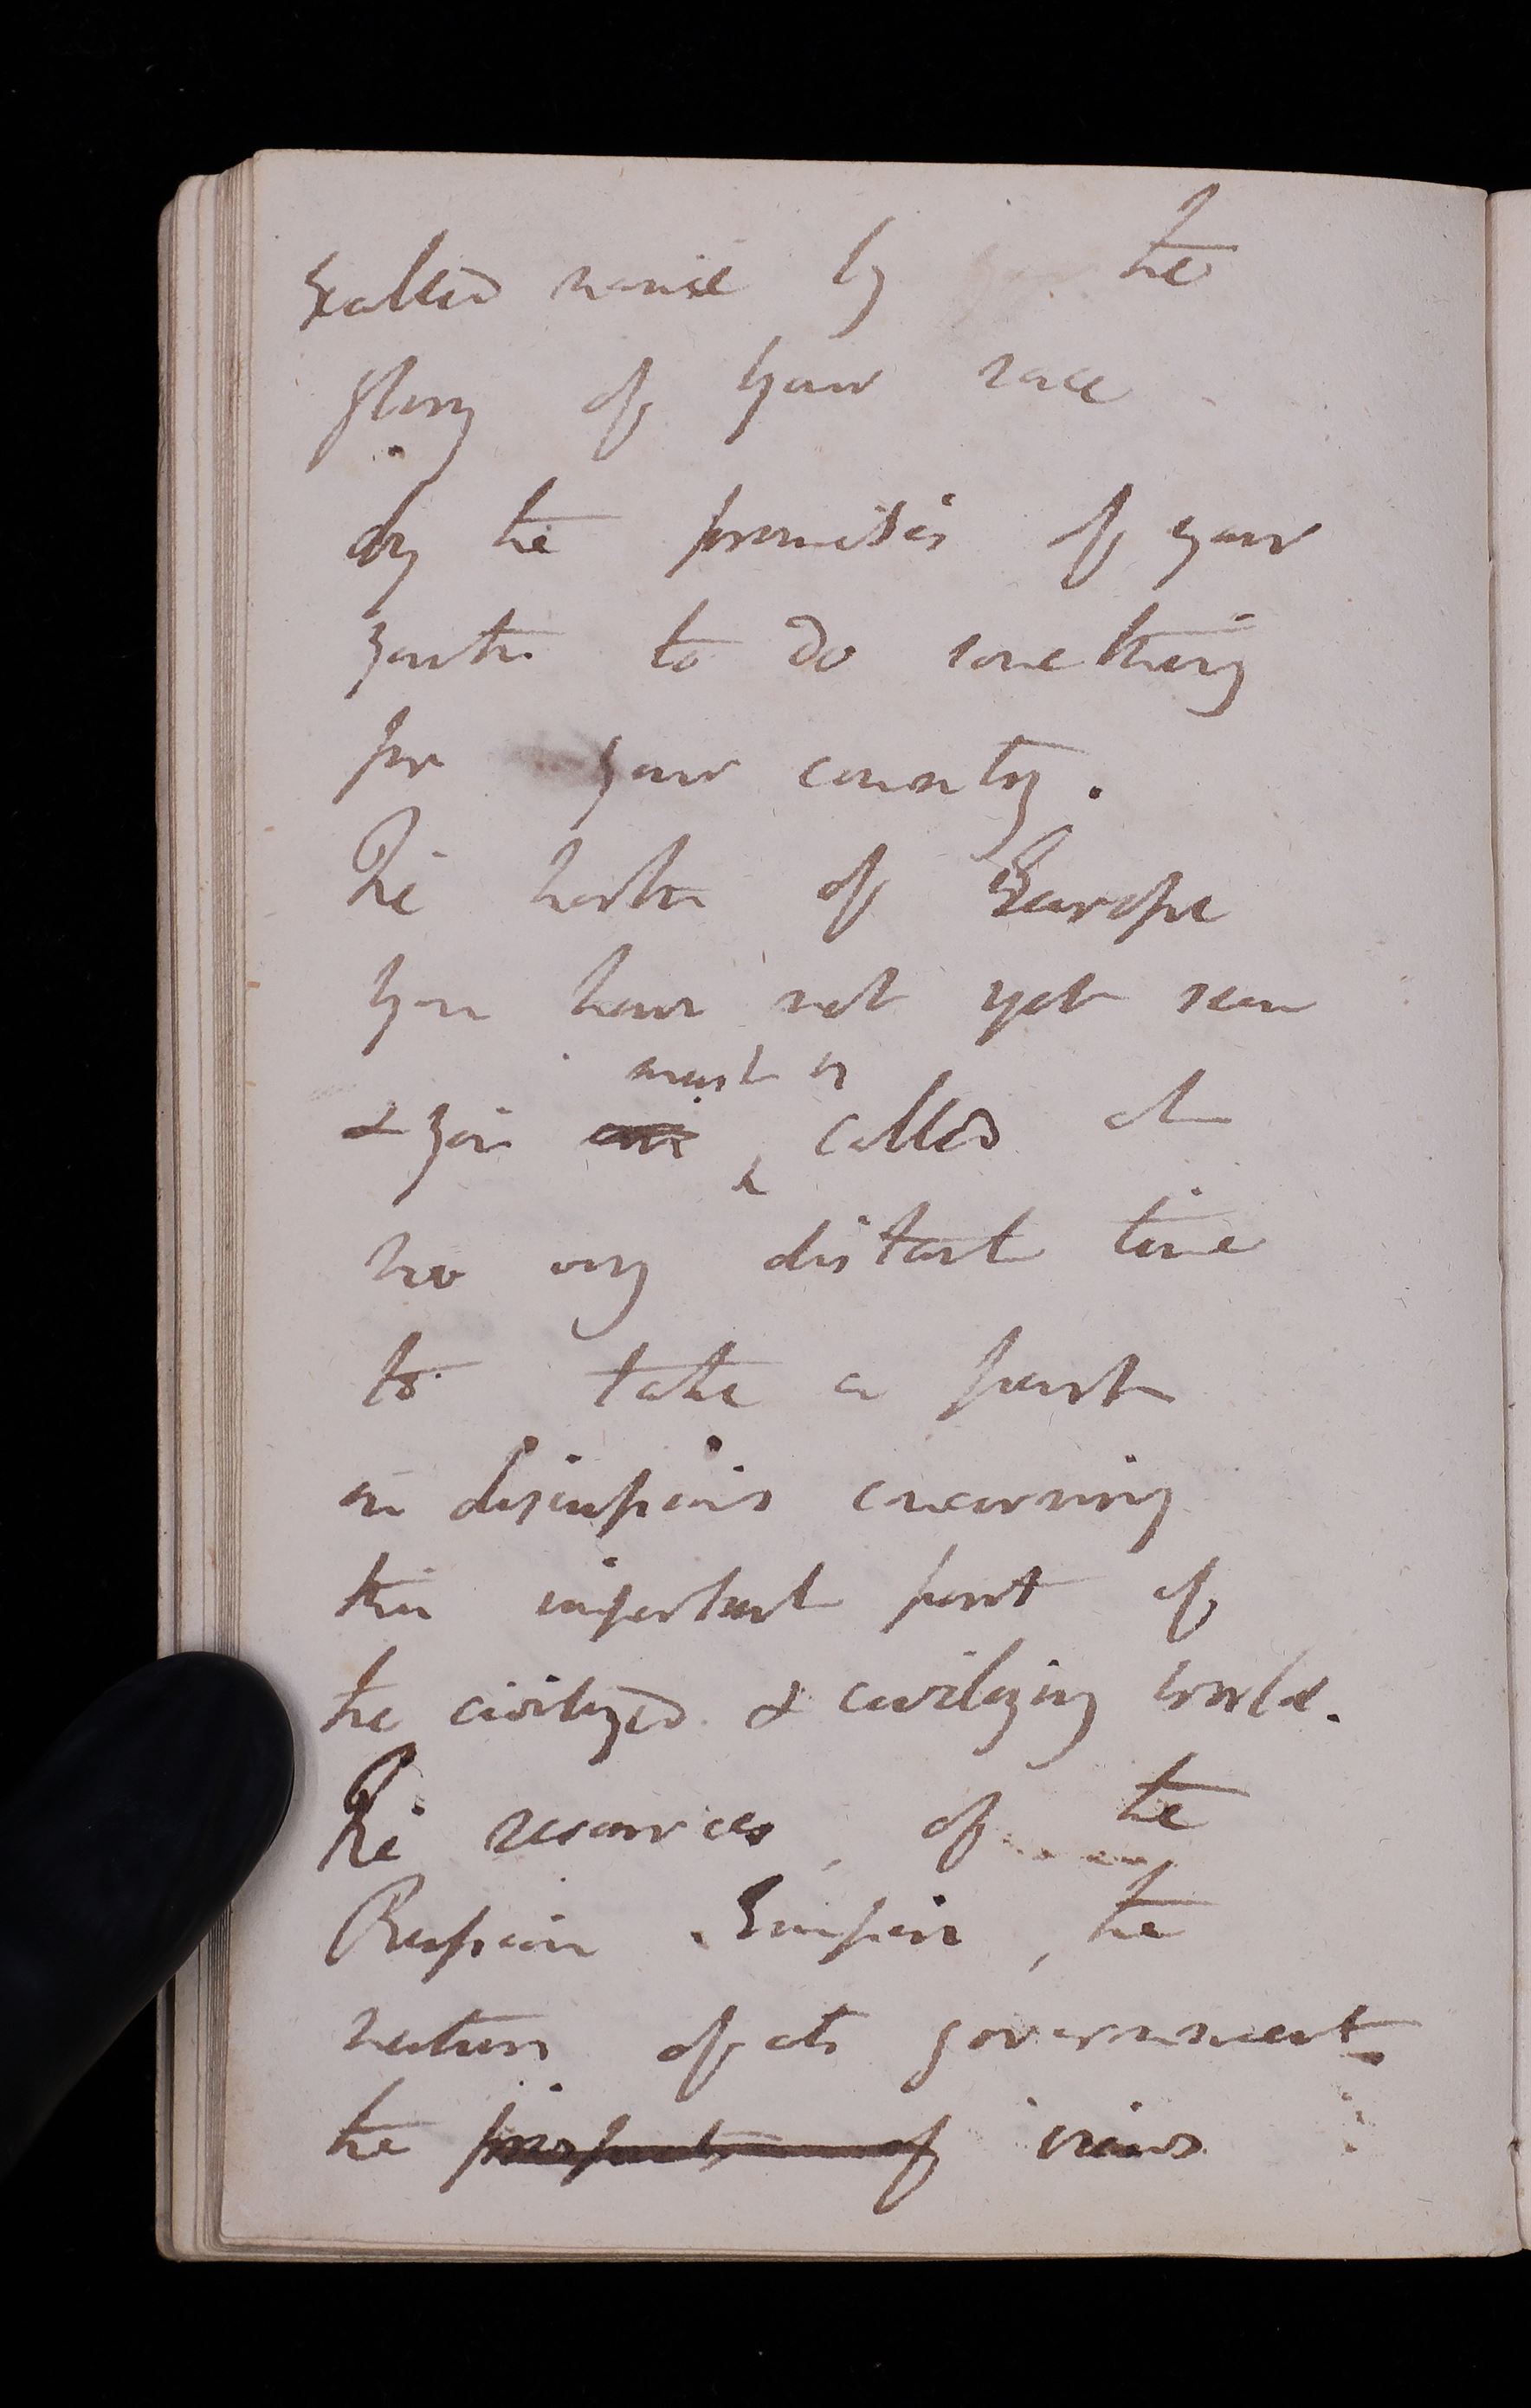 exalted name by the
glory of your race
by the promises of your
youth to do something
for your country.
The north of Europe
You have not yet seen
must be
& you are called at
no very distant time
to take a part
in discussions concerning
this important part of
the civilized & civilizing world.
The resources, of the
Russian Empire, the
nature of its government
the prospects of views